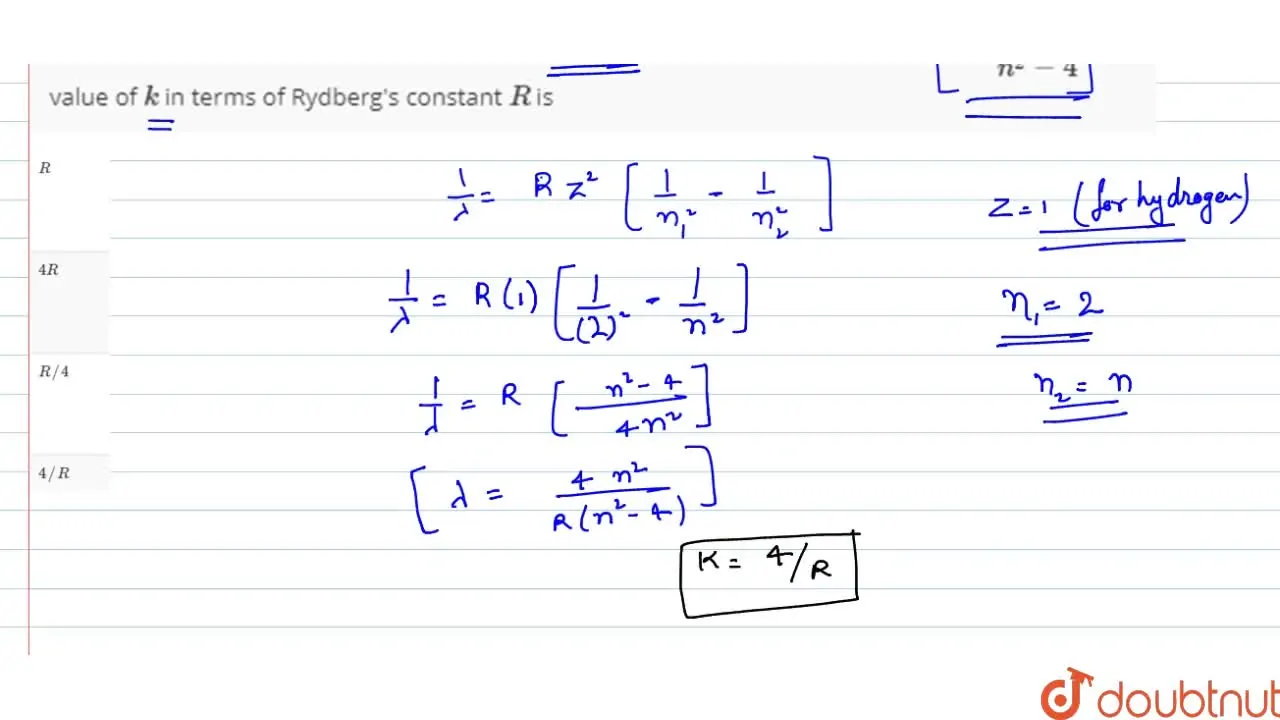 n² − 4
value of k in terms of Rydberg's constant R is
R
1/λ = R z² [ 1/n₁² - 1/n₂² ]
Z = 1 (for hydrogen)
4R
1/λ = R (1) [ 1/(2)² - 1/n² ]
n₁ = 2
R/4
1/λ = R [ n² - 4 / 4n² ]
n₂ = n
4/R
[ λ = 4 n² / R (n² - 4) ]
K = 4/R
doubtnut